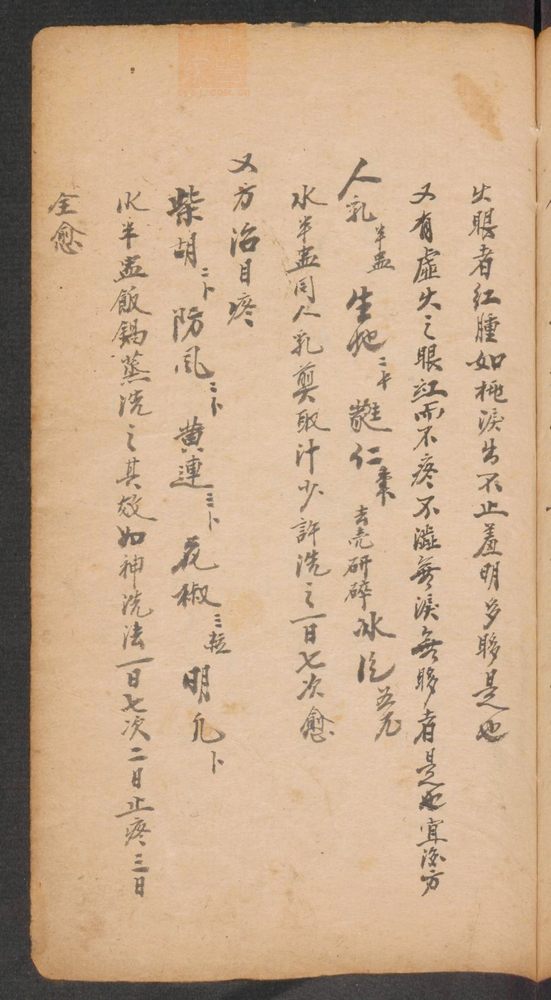 火眼者红腫如桃淚出不止羞明多眵是也
又有虛火之眼红而不疼不澁無淚無眵者是也宜後方
人乳半盃 生地二卜 蕤仁 去壳研碎 冰片五厘
水半盃同人乳煎取汁少許洗之一日七次愈
又方治目疼
柴胡二卜 防風三卜 黄連三卜 花椒三粒 明凡卜
水半盃飯鍋蒸洗之其效如神洗法一日七次二日止疼三日
全愈